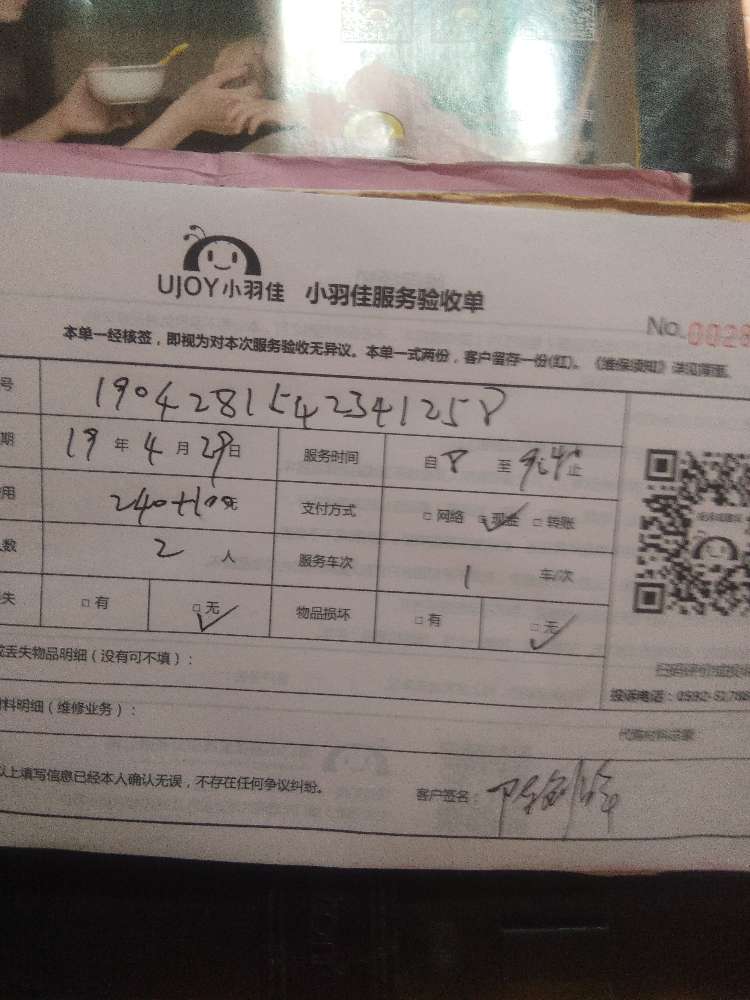 UJOY小羽佳 小羽佳服务验收单
No.0028
本单一经核签，即视为对本次服务验收无异议。本单一式两份，客户留存一份(红)。《维保须知》详见背面。
号 1904281542341258
期 19 年 4 月 29 日 服务时间 自 8 至 9:40 止
用 240+100元 支付方式 □ 网络 □ 现金 □ 转账
数 2 人 服务车次 1 车/次
失 □ 有 □ 无 物品损坏 □ 有 □ 无
丢失物品明细（没有可不填）：
扫码评价或投诉
投诉电话：0592-51788
料明细（维修业务）：
以上填写信息已经本人确认无误，不存在任何争议纠纷。
客户签名：